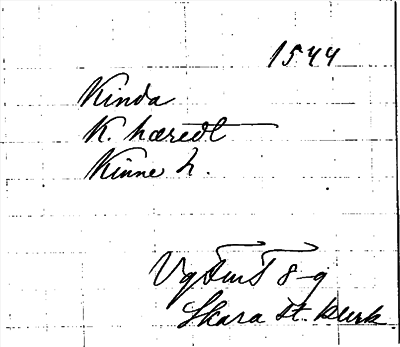 1544
Kinda
K. hæredt
Kinne h.
Vg Fmt 8-9
Skara st. kurk.